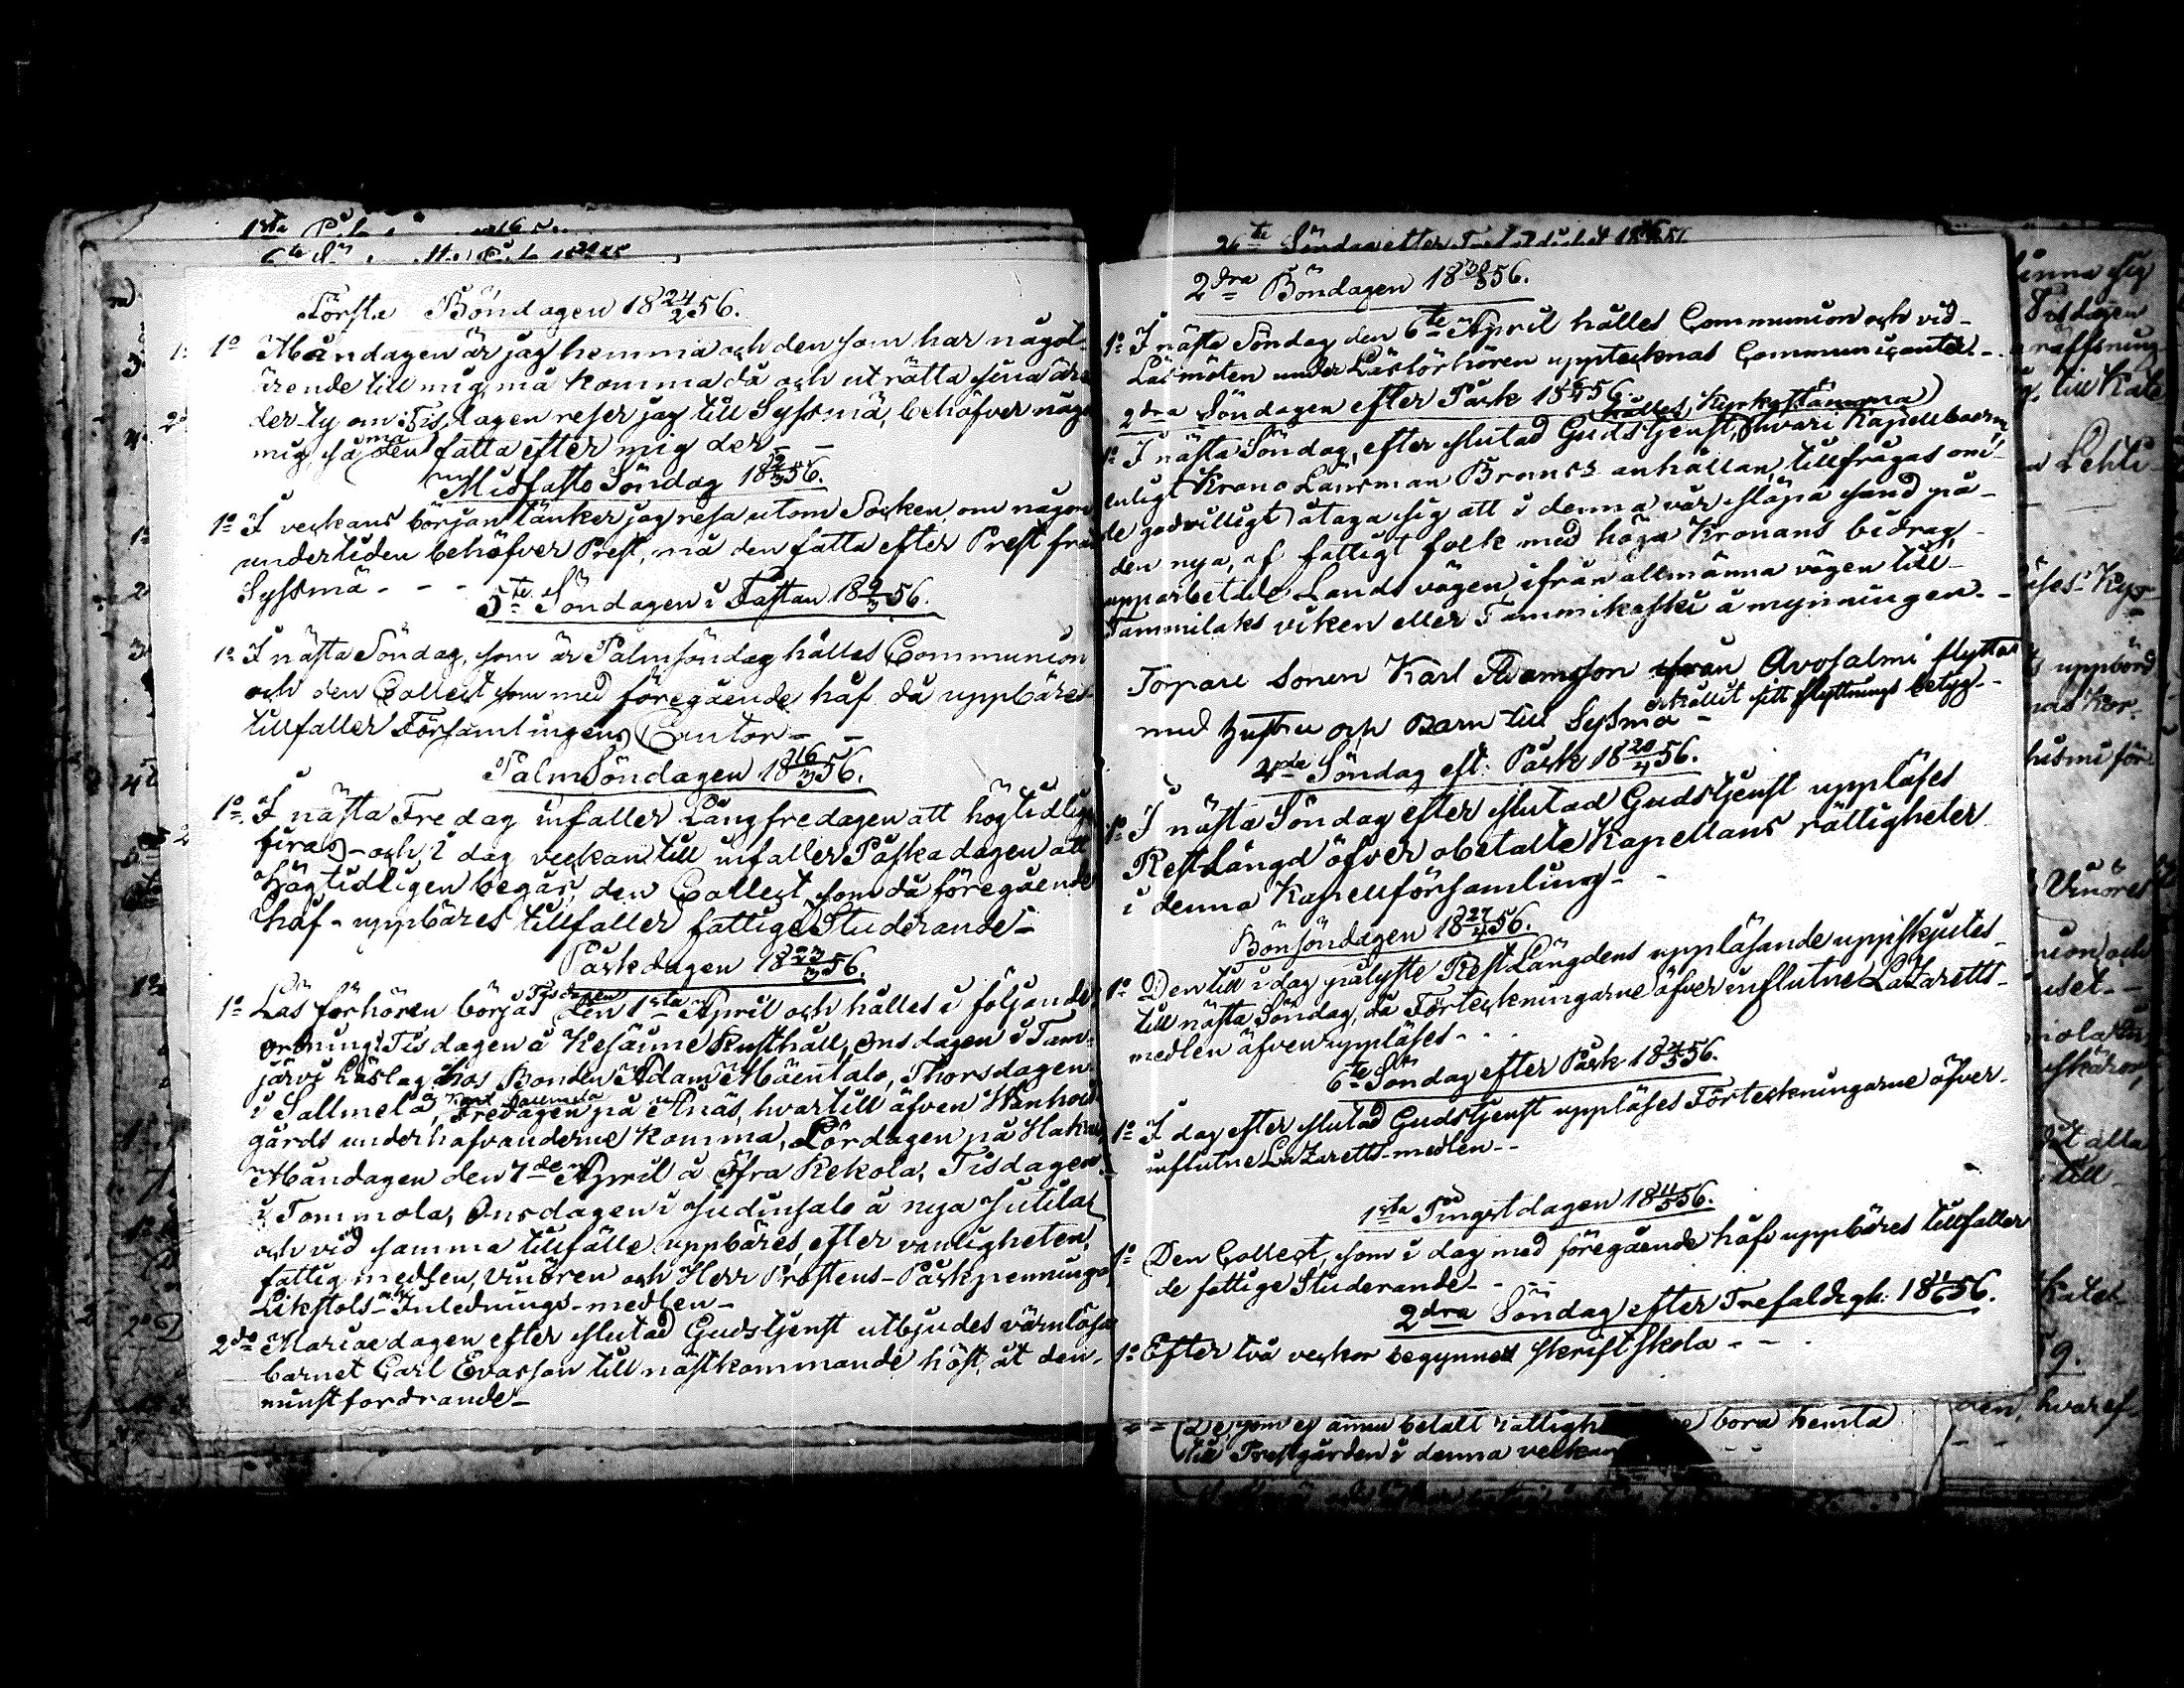 Första Böndagen 18 24/2 56.
1o Måndagen är jag hemma och den som har något
ärende till mig, må komma då och uträtta sina ären
der ty om Tisdagen reser jag till Syssmä, behöfver någo
mig, så må den fatta efter mig der - -
Midfasto Söndag 18 2/3 56.
1o I veckans början tänker jag resa utom Socken, om någon
undertiden behöfver Prest, må den fatta efter Prest från
Syssmä - - -
5te Söndagen i Fastan 18 9/3 56.
1o I nästa Söndag, som är Palmsöndag hålles Communion
och den Collect som med föregående håf då uppbäres
tillfaller Församlingens Cantor - -
PalmSöndagen 18 16/3 56.
1o I nästa Fredag infaller Långfredagen att högtidlig
firas - och i dag veckan till infaller Påskadagen att
Högtidligen begås, den Collect som då föregående
håf - uppbäres tillfaller fattige Studerande -
Påskdagen 18 23/3 56.
1o Läsförhören börjas Tisdagen den 1sta April och hålles i följande
ordning: Tisdagen å Kesäune Rusthåll, Onsdagen i Tam-
järvi Läslag hos Bonden Adam Mäentalo, Thorsdagen
i Sallmela, Fredagen på Anäs, hvartill äfven Wanhois
gårds underhafvanderne komma, Lördagen på Haka
Måndagen den 7de April å Öfra Rekola, Tisdagen
i Tommola, Onsdagen i Judinsalo å nya Jutila
och vid samma tillfälle uppbäres, efter vanligheten,
fattigmedlen, Vinören och Herr Prostens Påskpenningar
Likstols- och Inlednings-medlen -
2do Mariæ dagen efter slutad Gudstjenst utbjudes värnlösa
barnet Carl Evasson till nästkommande höst, åt den
minstfordrande -
26te Söndag efter
2dra Böndagen 18 30/3 56.
1o I nästa Söndag den 6te April hålles Communion och vid
Läsmöten under Läsförhören upptecknas Communicanter -
2dra Söndagen efter Påsk 18 6/4 56.
1o I nästa Söndag, efter slutad Gudstjenst, hålles Kyrkostämma, hvari Kapellboerne
enligt Krono Länsman Bromss anhållan, tillfrågas om
de godvilligt åtaga sig att i denna vår släpa sand på
den nya, af fattigt folk med höga Kronans bidrag,
upparbetade Landsvägen, ifrån allmänna vägen till
Tammilaks viken eller Tammikoski åmynningen. -
Torpare Sonen Karl Adamsson från Avosalmi flyttar
med hustru och Barn till Sysmä - erhållit sitt flyttnings betyg -
4de Söndag eft: Påsk 18 20/4 56.
1o I nästa Söndag efter slutad Gudstjenst uppläses
RestLängd öfver obetalte Kapellans rättigheter
i denna Kapellförsamling - -
Bönsöndagen 18 27/4 56.
1o Den till i dag pålyste RestLängdens uppläsande uppskjutes
till nästa Söndag, då Förteckningarne öfver influtne Lazaretts-
medlen äfven uppläses - -
6te Söndag efter Påsk 18 4/5 56.
1o I dag efter slutad Gudstjenst uppläses Förteckningarne öfver
influtne Lazaretts-medlen - -
1sta Pingstdagen 18 11/5 56.
1o Den Collect, som i dag med föregående håf uppbäres tillfaller
de fattige Studerande - - - -
2dra Söndag efter Trefaldigh: 18 1/6 56.
1o Efter två veckor begynnes Skriftskola - - -
De som ej ännu betalt bora hemta
till Prestgården i denna veckan